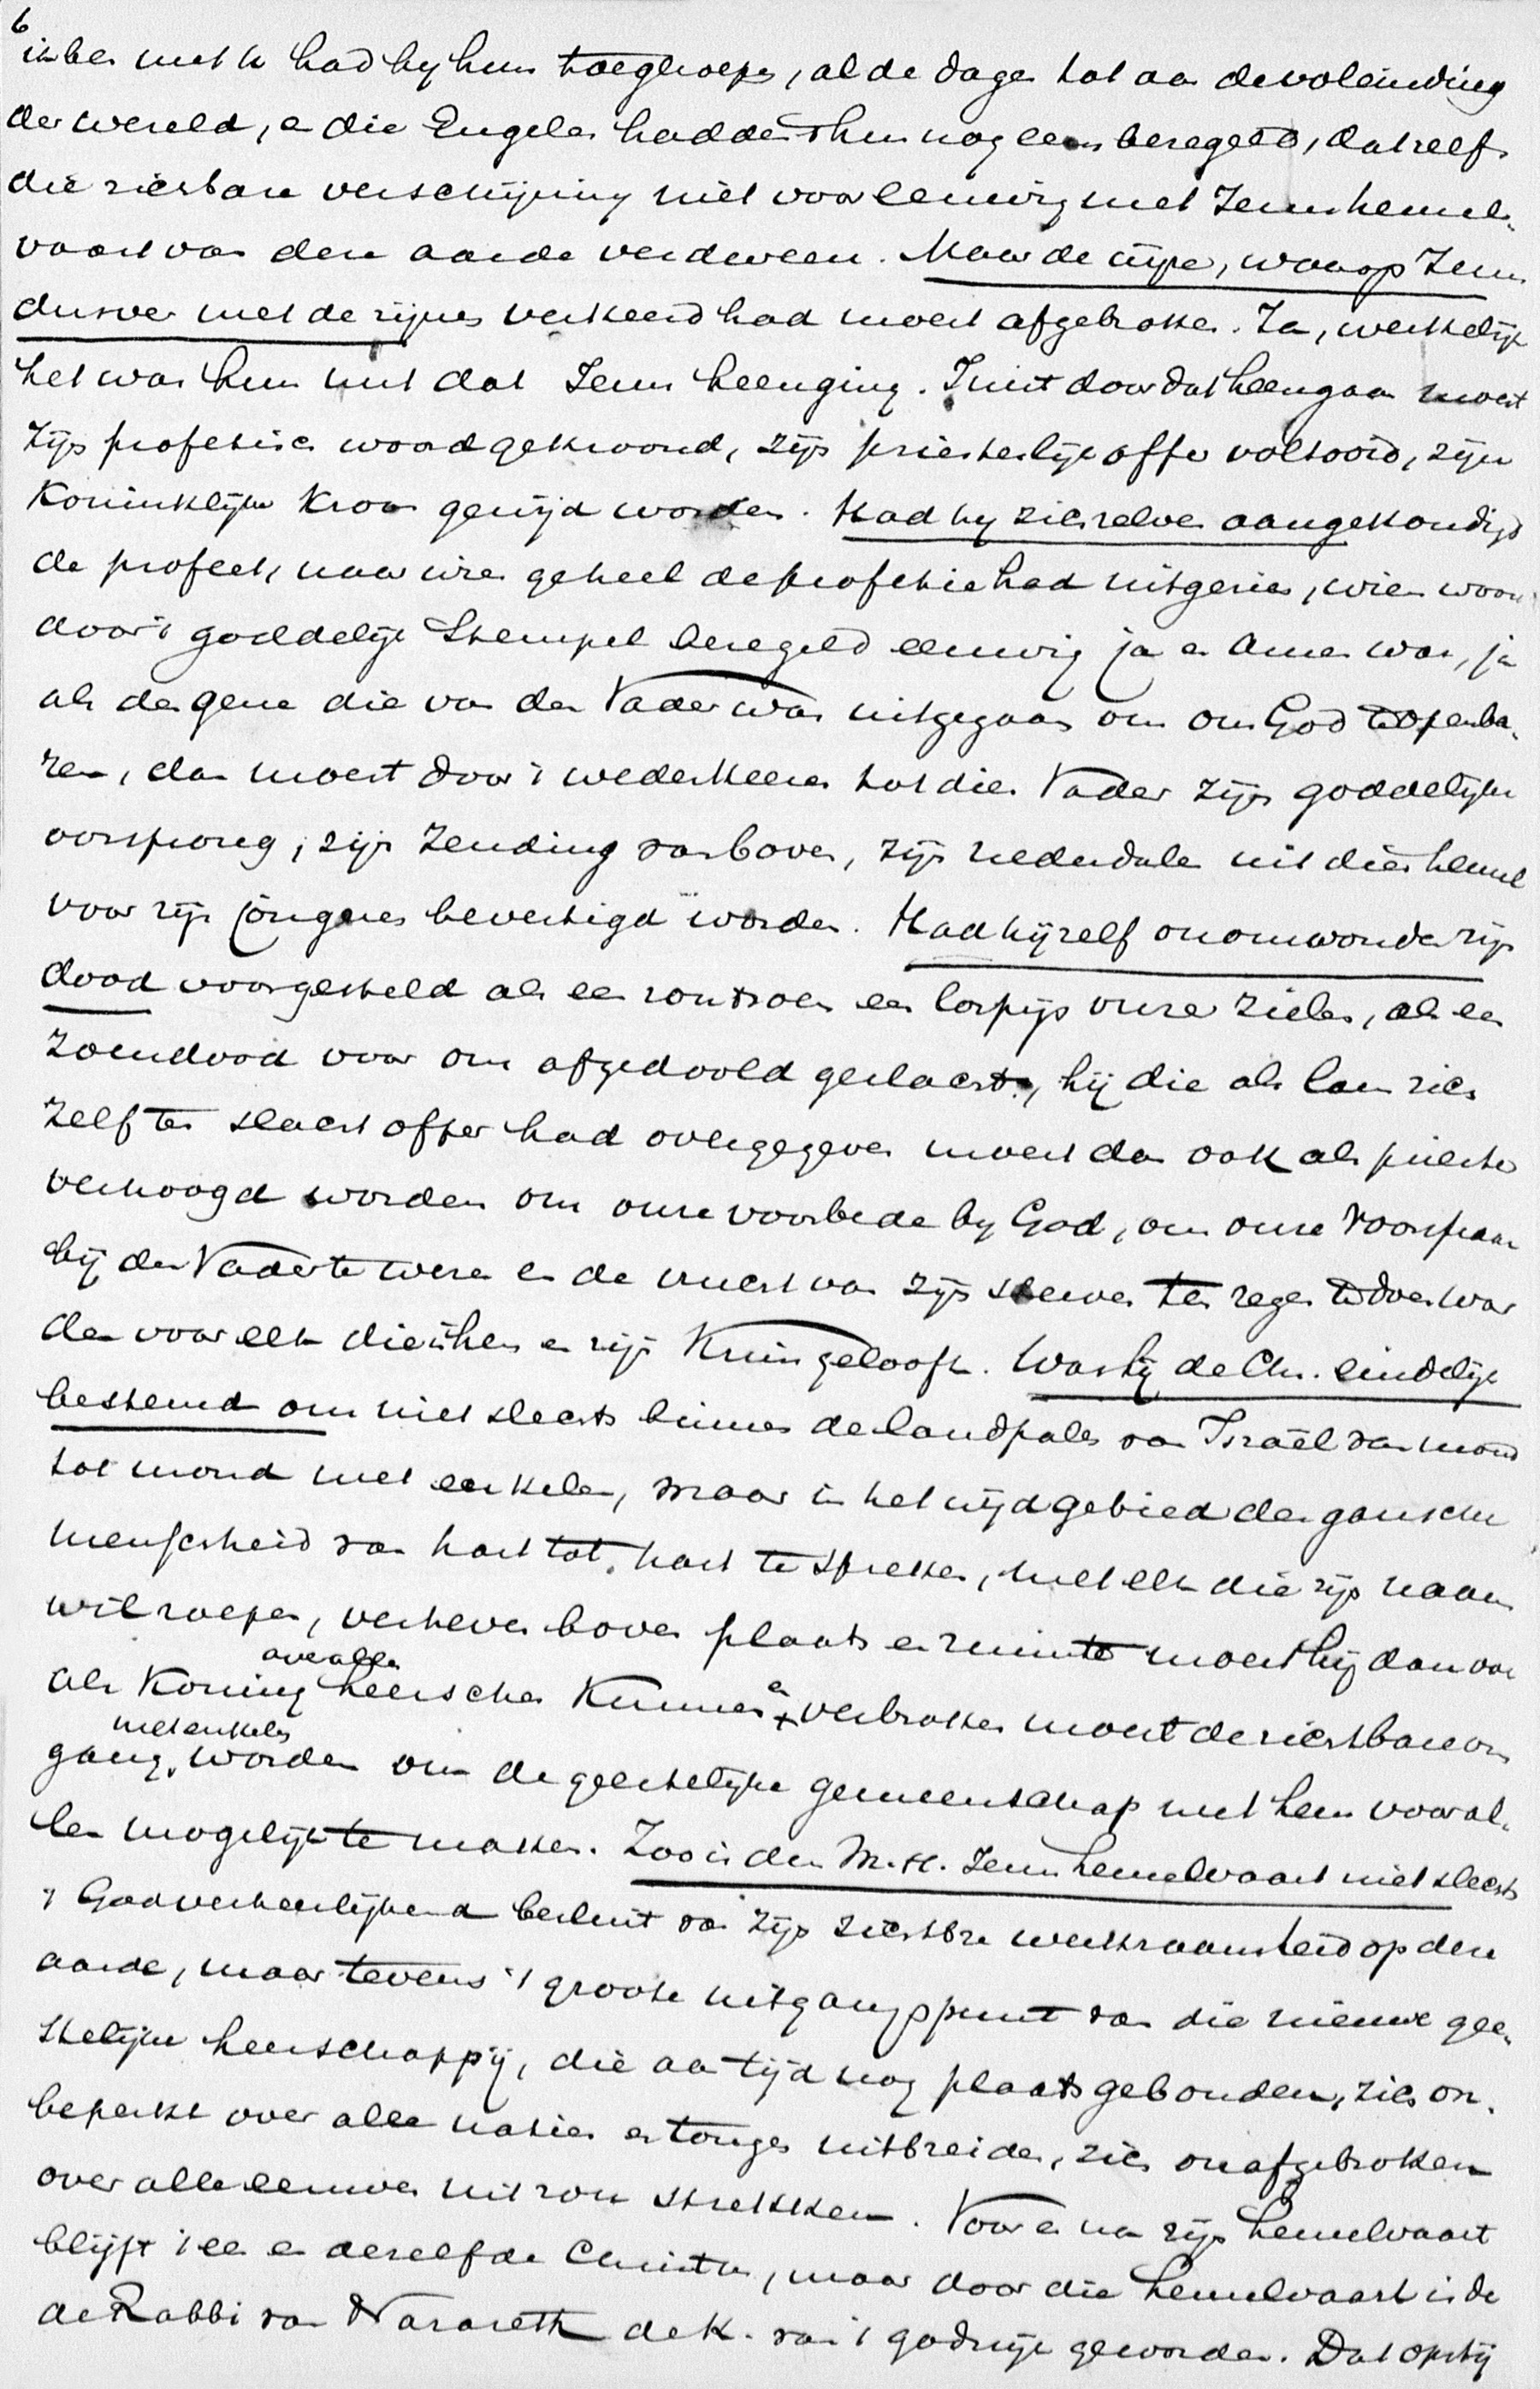 6
ik ben met u had hy hun toegeroepen, al de dagen tot aan de voleinding
der wereld, en die Engelen hadden 't hun nog eens bezegeld, dat zelfs
die zichtbare verschijning niet voor eeuwig met Jezus hemel-
vaart van deze aarde verdween. Maar de wijze, waarop Jezus
dusver met de zijnen verkeerd had moest afgebroken. Ja, werkelijk
het was hun nut dat Jezus heenging. Juist door dat heengaan moest
Zijn profetisch woord gekroond, zijn priesterlijk offer voltooid, zijn
Koninklijke Kroon gewijd worden. Had hy zichzelven aangekondigd
de profeet, naar wien geheel de profetie had uitgezien, wiens woord
door 't goddelijk Stempel bezegeld eeuwig ja en Amen was, ja
als de gene die van den Vader was uitgegaan om ons God te openba-
ren, dan moest door 't wederkeeren tot dien Vader zijn goddelijke
oorsprong, zijn Zending van boven, zijn nederdalen uit dien hemel
voor zijn jongeren bevestigd worden. Had hijzelf onomwonden zijn
dood voorgesteld als een rantsoen een losprijs onzer zielen, als een
Zoendood voor ons afgedoold geslacht, hij die als lam zich
zelf ten slachtoffer had overgegeven moest dan ook als priester
verhoogd worden om onze voorbede by God, om onze Voorspraak
bij den Vader te wezen en de vrucht van zijn sterven ten zegen te doen wor
den voor elk die in hem en zijn Kruis gelooft. Was hij de Chr. eindelijk
bestemd om niet slechts binnen de landpalen van Israël van mond
tot mond met enkelen, maar in het wijd gebied der gansche
menschheid van hart tot hart te spreken, met elk die zijn naam
wil roepen, verheven boven plaats en ruimte moest hij dan ook
als Koning over allen heerschen Kunnen en verbroken moest de zichtbare om
gang met enkelen worden om de geestelijke gemeenschap met hem voor al-
len mogelijk te maken. Zoo is dan M.H. Jezus hemelvaart niet slechts
't Godverheerlijkend besluit van zijn zichtbre werkzaamheid op deze
aarde, maar tevens 't groote uitgangspunt van die nieuwe gee-
stelijke heerschappij, die aan tijd nog plaats gebonden, zich on-
beperkt over alle natien en tongen uitbreiden, zich onafgebroken
over alle eeuwen uit zou strekken. Voor en na zijn hemelvaart
blijft 't een en dezelfde Christus, maar door die hemelvaart is de
de Rabbi van Nazareth de K. van 't godsrijk geworden. Dat opstij